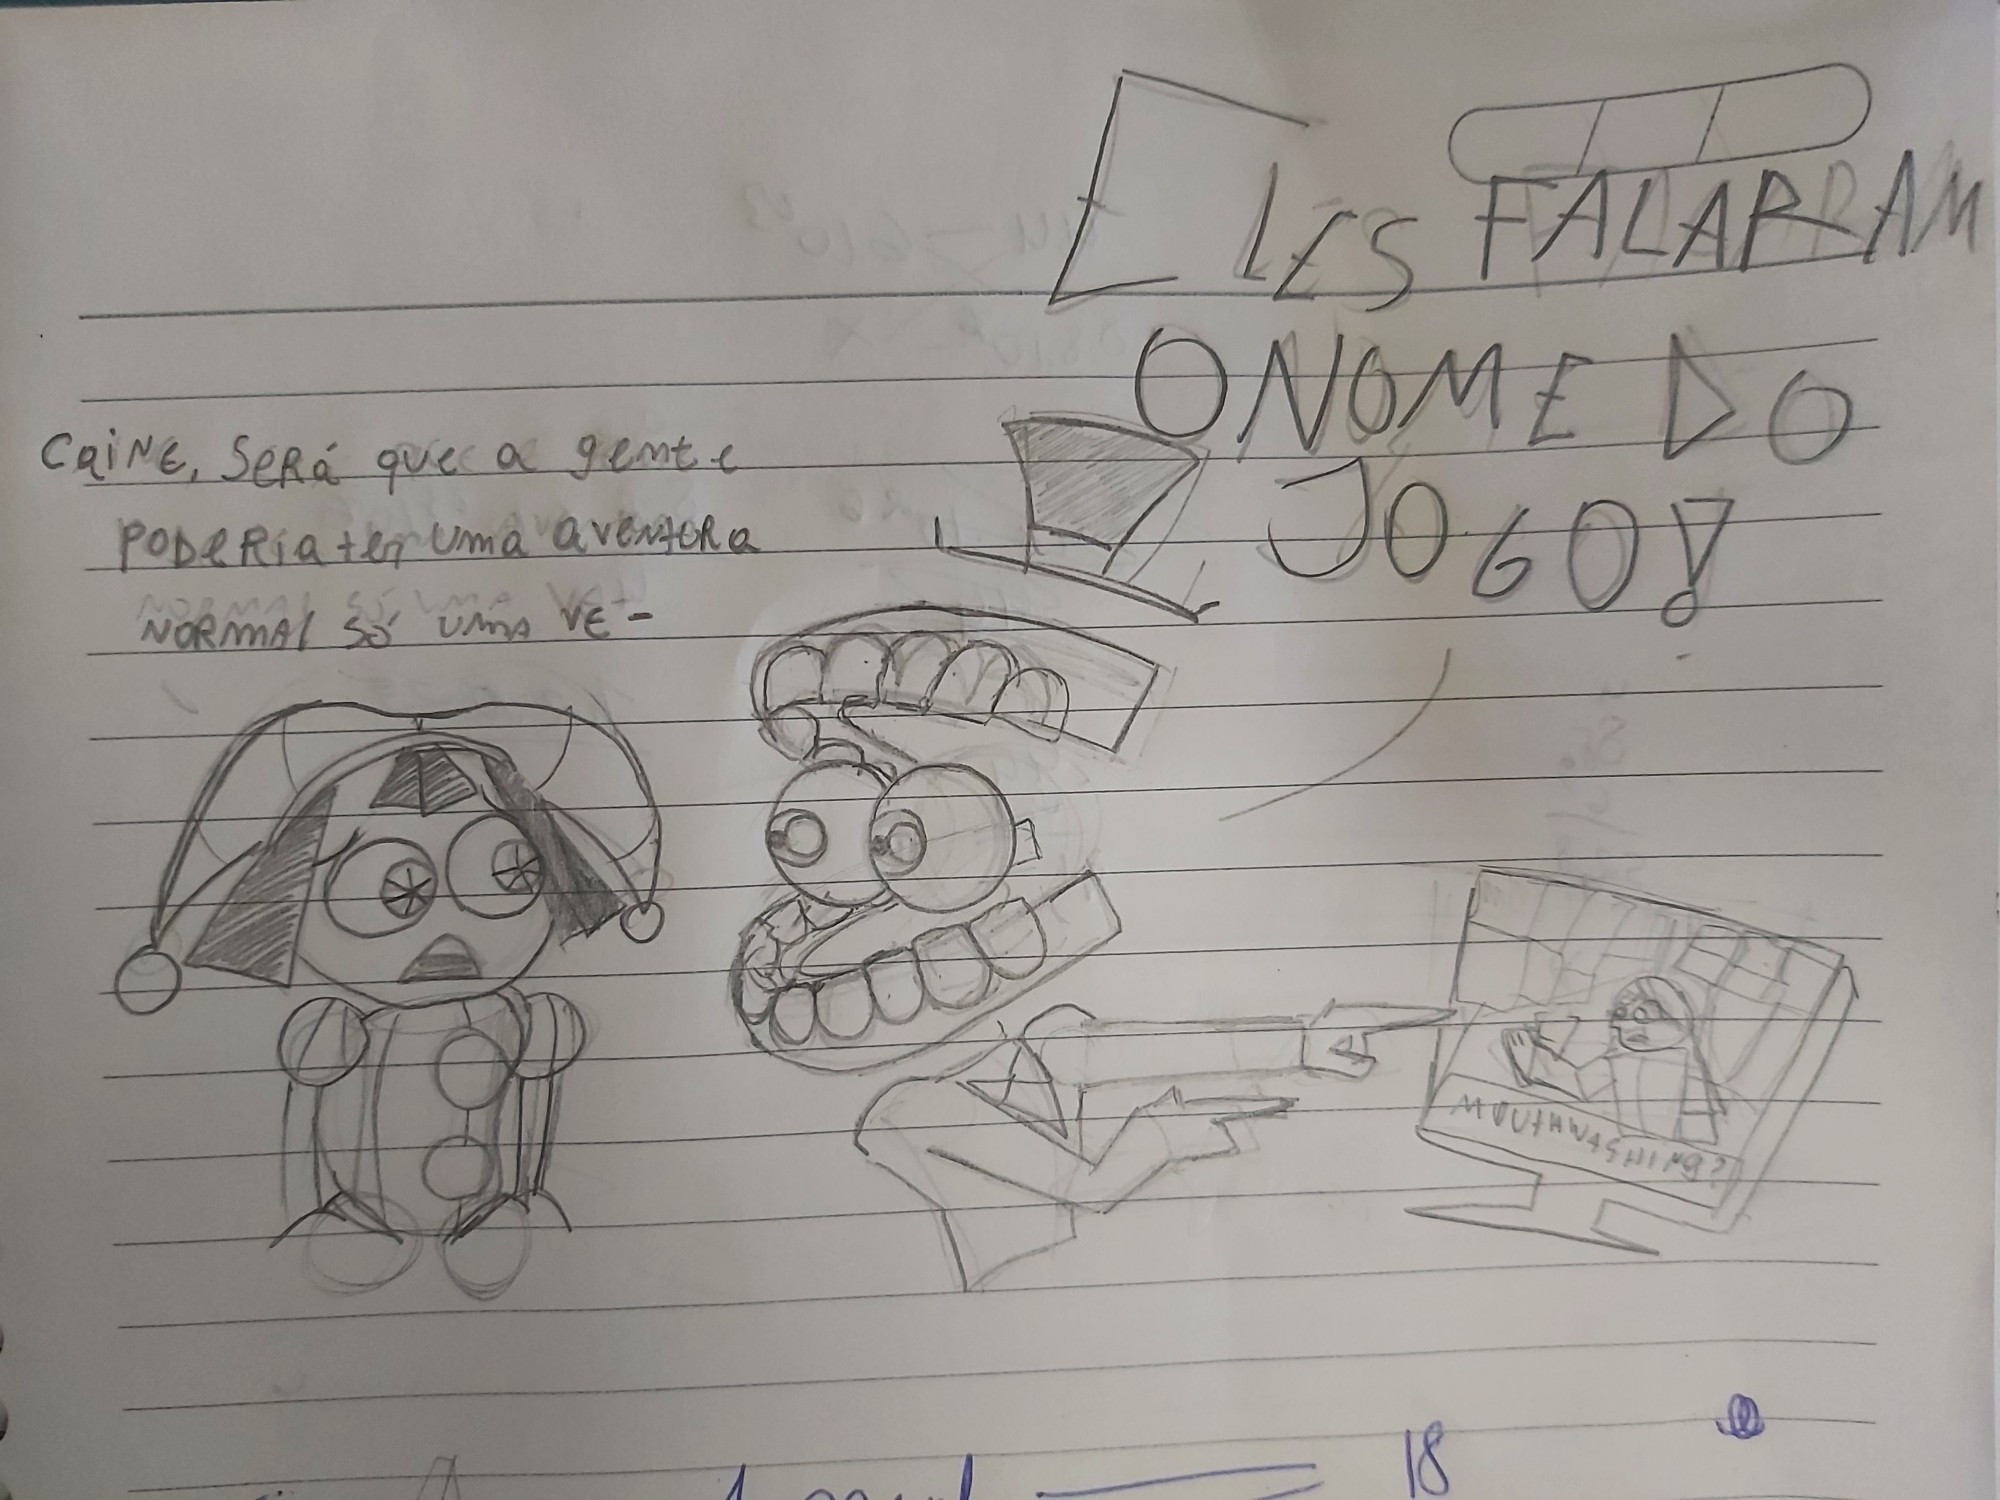 ELES FALARAM
O NOME DO
JOGO!
CAINE, SERÁ que a gente
PODERIA ter uma aventura
NORMAL SÓ UMA VE-
MOUTHWASHING 2
18